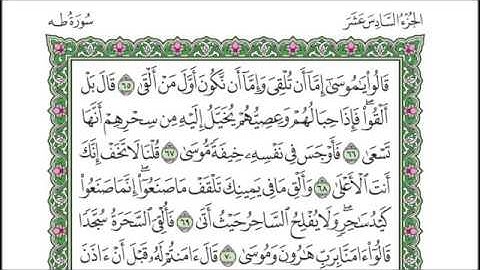 سُورَةُ طه الجُزْءُ السَّادِسَ عَشَرَ
قَالُوا۟ يَـٰمُوسَىٰٓ إِمَّآ أَن تُلْقِىَ وَإِمَّآ أَن نَّكُونَ أَوَّلَ مَنْ أَلْقَىٰ ٦٥ قَالَ بَلْ
أَلْقُوا۟ۖ فَإِذَا حِبَالُهُمْ وَعِصِيُّهُمْ يُخَيَّلُ إِلَيْهِ مِن سِحْرِهِمْ أَنَّهَا
تَسْعَىٰ ٦٦ فَأَوْجَسَ فِى نَفْسِهِۦ خِيفَةً مُّوسَىٰ ٦٧ قُلْنَا لَا تَخَفْ إِنَّكَ
أَنتَ ٱلْأَعْلَىٰ ٦٨ وَأَلْقِ مَا فِى يَمِينِكَ تَلْقَفْ مَا صَنَعُوٓا۟ۖ إِنَّمَا صَنَعُوا۟
كَيْدُ سَـٰحِرٍۖ وَلَا يُفْلِحُ ٱلسَّاحِرُ حَيْثُ أَتَىٰ ٦٩ فَأُلْقِىَ ٱلسَّحَرَةُ سُجَّدًا
قَالُوٓا۟ ءَامَنَّا بِرَبِّ هَـٰرُونَ وَمُوسَىٰ ٧٠ قَالَ ءَامَنتُمْ لَهُۥ قَبْلَ أَنْ ءَاذَنَ